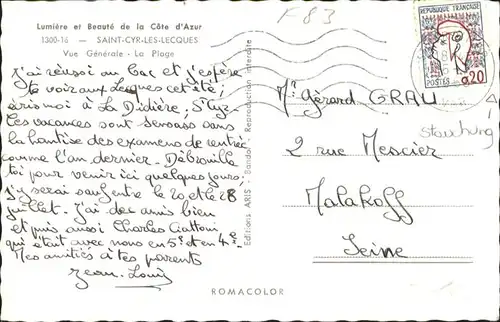 Lumière et Beauté de la Côte d'Azur
1300-16 — SAINT-CYR-LES-LECQUES
Vue Générale - La Plage
J'ai réussi au bac et j'espère
te voir aux Lecques cet été;
écris moi à La Didière, St Cyr.
les vacances sont sensass sans
la hantise des examens de rentrée
comme l'an dernier. Débrouille
toi pour venir ici quelques jours;
j'y serai sauf entre le 20 et le 28
juillet. J'ai des amis bien
et puis aussi Charles
qui était avec nous en 5e et en 4e.
Mes amitiés à tes parents
Jean-Louis
Editions ARIS - Bandol - Reproduction interdite
F 83
REPUBLIQUE FRANÇAISE
POSTES 0,20
Mr Gérard GRAU
2 rue Mescier
Malakoff
Seine
ROMACOLOR